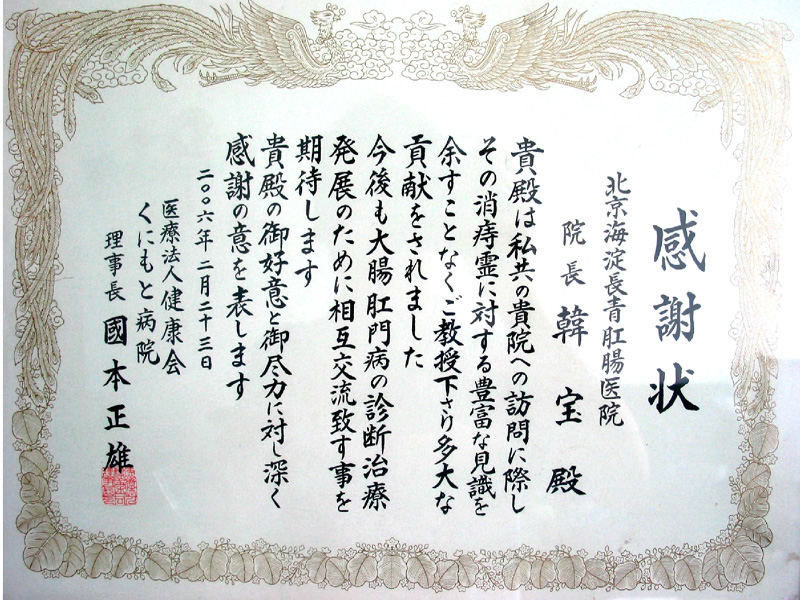 感謝状
北京海淀長青肛腸医院
院長 韓宝殿
貴殿は私共の貴院への訪問に際し
その消痔霊に対する豊富な見識を
余すことなくご教授下さり多大な
貢献をされました
今後も大腸肛門病の診断治療
発展のために相互交流致す事を
期待します
貴殿の御好意と御尽力に対し深く
感謝の意を表します
二〇〇六年二月二十三日
医療法人健康会
くにもと病院
理事長 國本正雄